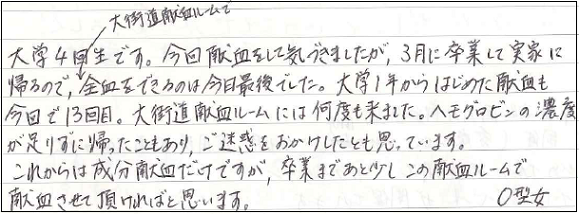 大街道献血ルームで
大学4回生です。今回献血をして気づきましたが、3月に卒業して実家に
帰るので、全血をできるのは今日最後でした。大学1年からはじめた献血も
今回で13回目。大街道献血ルームには何度も来ました。ヘモグロビンの濃度
が足りずに帰ったこともあり、ご迷惑をおかけしたとも思っています。
これからは成分献血だけですが、卒業まであと少しこの献血ルームで
献血させて頂ければと思います。
O型女